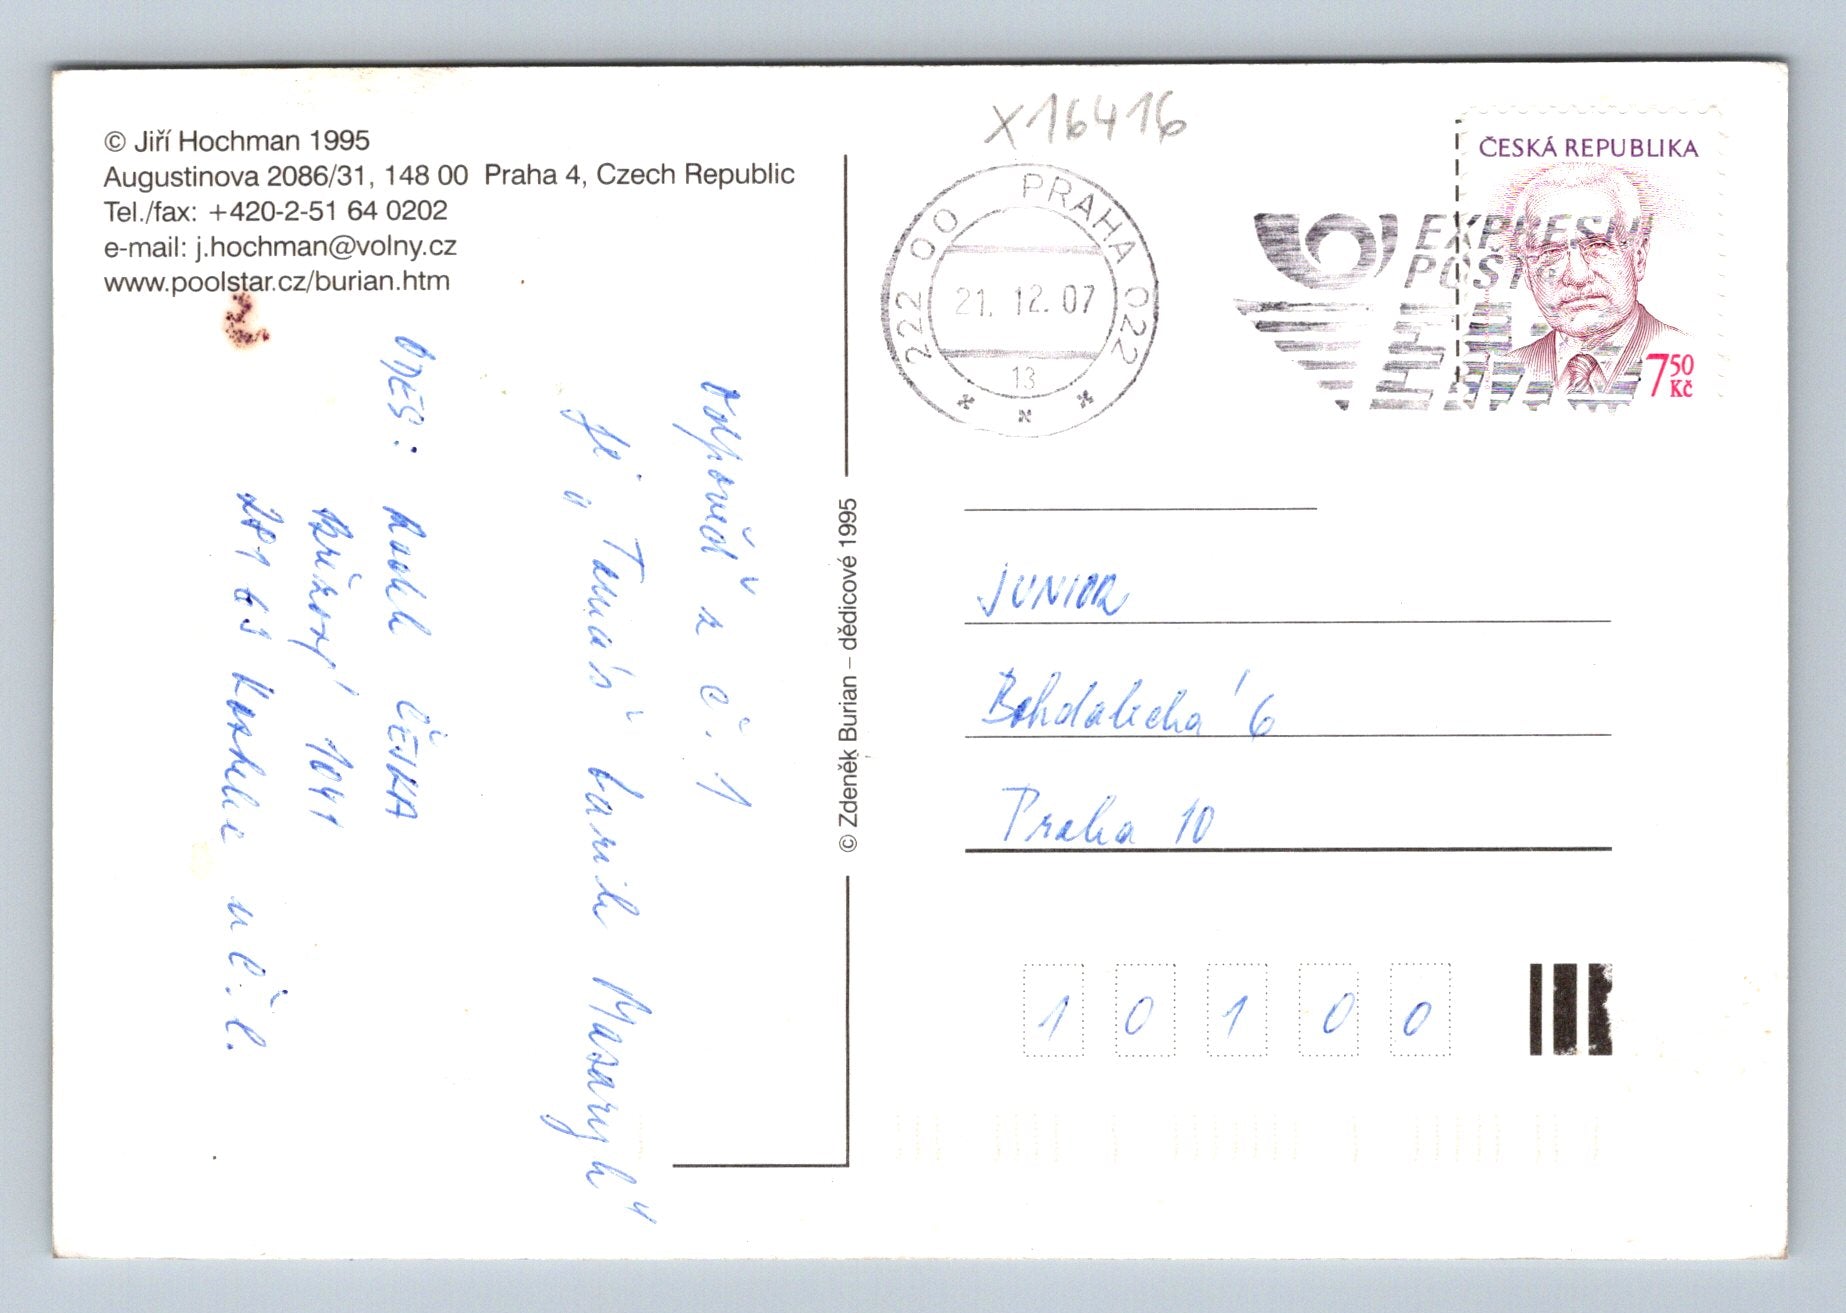 © Jiří Hochman 1995
Augustinova 2086/31, 148 00 Praha 4, Czech Republic
Tel./fax: +420-2-51 64 0202
e-mail: j.hochman@volny.cz
www.poolstar.cz/burian.htm
Odpověď z č. 1
je „Tomáš Garik Masaryk"
ODES:
ČEJKA
Břízový 1041
281 63 Kostelec n.č.l.
© Zdeněk Burian – dědicové 1995
X16416
222 00 PRAHA 022
21. 12. 07
13
EXPRESNÍ
POŠTA
ČESKÁ REPUBLIKA
7 50 Kč
JUNIOR
Bohdalecká 6
Praha 10
1 0 1 0 0